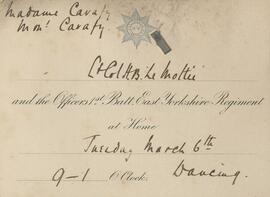 Madame Cavafy
Monr. Cavafy.
Lt Col H.B. Le Mottée
and the Officers 1st Batt. East Yorkshire Regiment
at Home
Tuesday March 6th
9-1 O'Clock. Dancing.